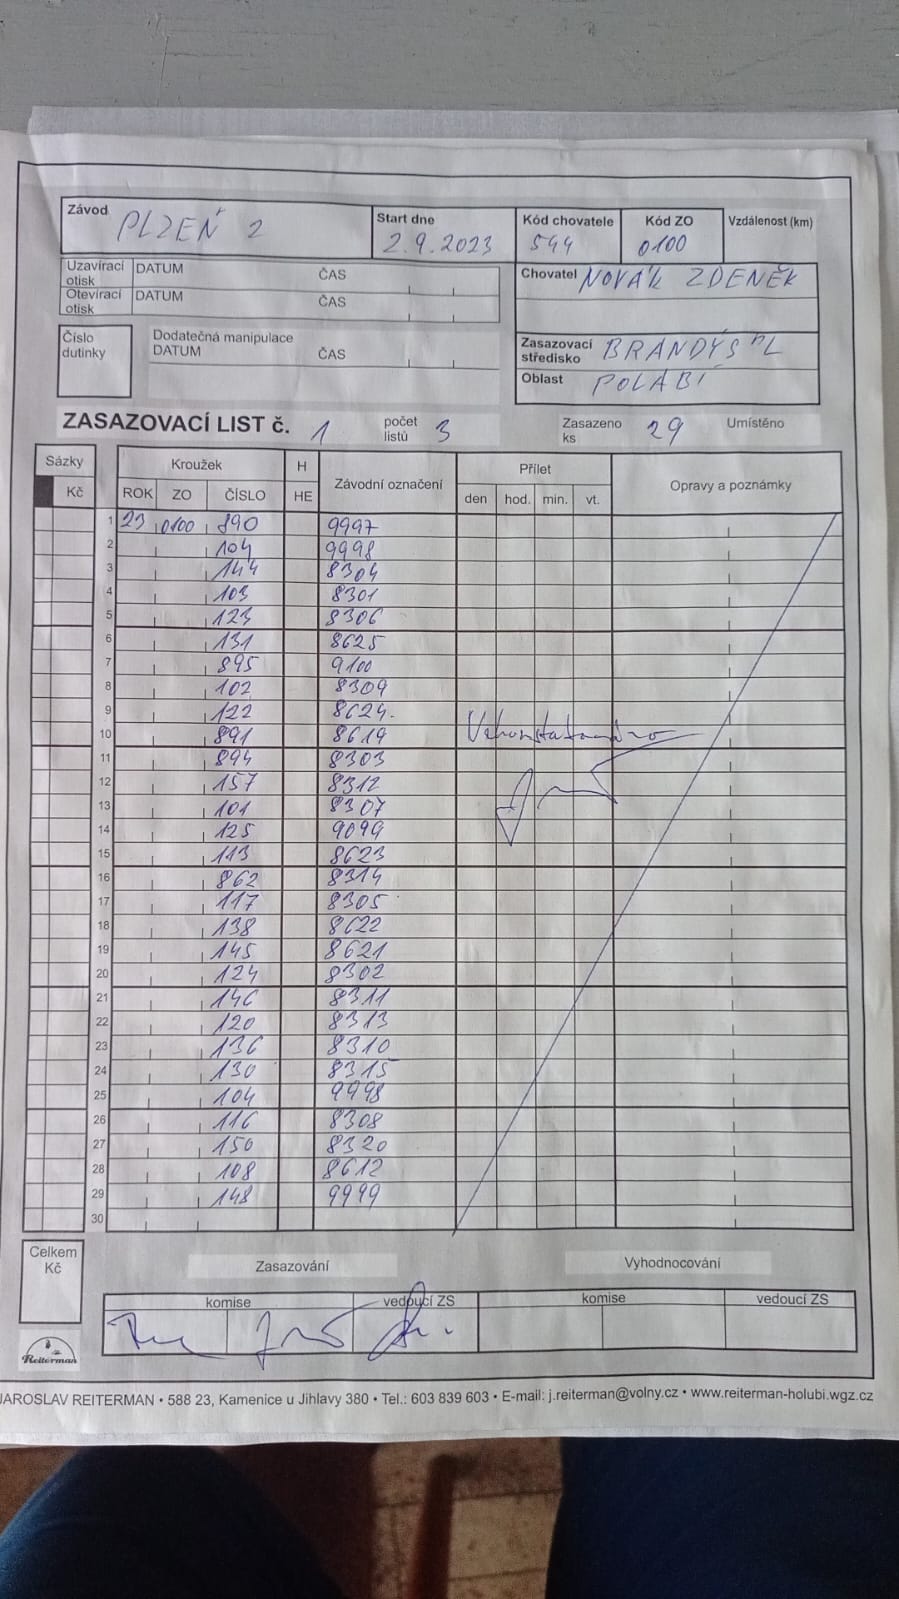 Závod PLZEŇ 2 Start dne 2.9.2023 Kód chovatele 544 Kód ZO 0100 Vzdálenost (km)
Uzavírací otisk DATUM ČAS
Otevírací otisk DATUM ČAS
Chovatel NOVÁK ZDENĚK
Číslo dutinky
Dodatečná manipulace
DATUM ČAS
Zasazovací středisko BRANDÝS n L
Oblast POLABÍ
ZASAZOVACÍ LIST č. 1 počet listů 3 Zasazeno ks 29 Umístěno
Sázky Kroužek H Závodní označení Přílet Opravy a poznámky
Kč ROK ZO ČÍSLO HE den hod. min. vt.
1 23 0100 890 9997
2 104 9998
3 144 8304
4 103 8301
5 123 8306
6 131 8625
7 895 9100
8 102 8309
9 122 8624.
10 891 8619
11 894 8303
12 157 8312
13 101 8307
14 125 9099
15 113 8623
16 862 8314
17 117 8305
18 138 8622
19 145 8621
20 124 8302
21 146 8311
22 120 8313
23 136 8310
24 130 8315
25 104 9998
26 116 8308
27 150 8320
28 108 8612
29 148 9999
30
Celkem Kč
Zasazování Vyhodnocování
komise vedoucí ZS komise vedoucí ZS
Reiterman
JAROSLAV REITERMAN • 588 23, Kamenice u Jihlavy 380 • Tel.: 603 839 603 • E-mail: j.reiterman@volny.cz • www.reiterman-holubi.wgz.cz